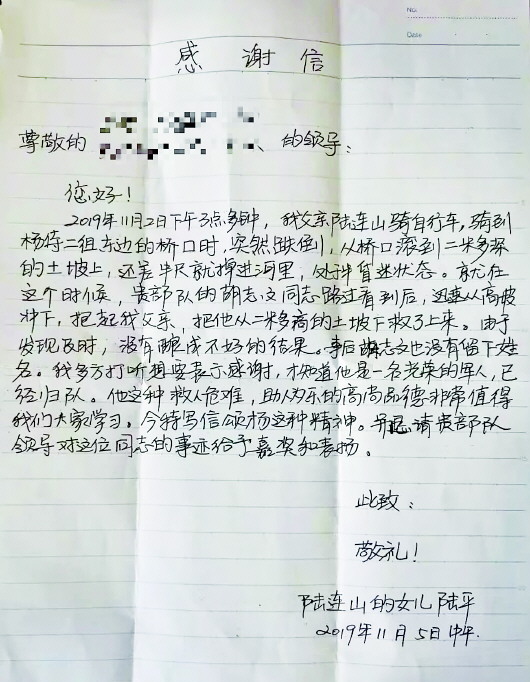 NO.
Date
感谢信
尊敬的 、的领导：
您好！
2019年11月2日下午3点多钟，我父亲陆连山骑自行车，骑到
杨侍二组东边的桥口时，突然跌倒，从桥口滚到二米多深
的土坡上，还差半尺就掉进河里，处于昏迷状态。就在
这个时候，贵部队的胡志文同志路过看到后，迅速从高坡
冲下，把起我父亲，把他从二米多高的土坡下救了上来。由于
发现及时，没有酿成不好的结果。事后胡志文也没有留下姓
名。我多方打听想要表示感谢，才知道他是一名光荣的军人，已
经归队。他这种救人危难，助人为乐的高尚品德非常值得
我们大家学习。今特写信颂扬这种精神。并恳请贵部队
领导对这位同志的事迹给予嘉奖和表扬。
此致：
敬礼！
陆连山的女儿 陆平
2019年11月5日中午.